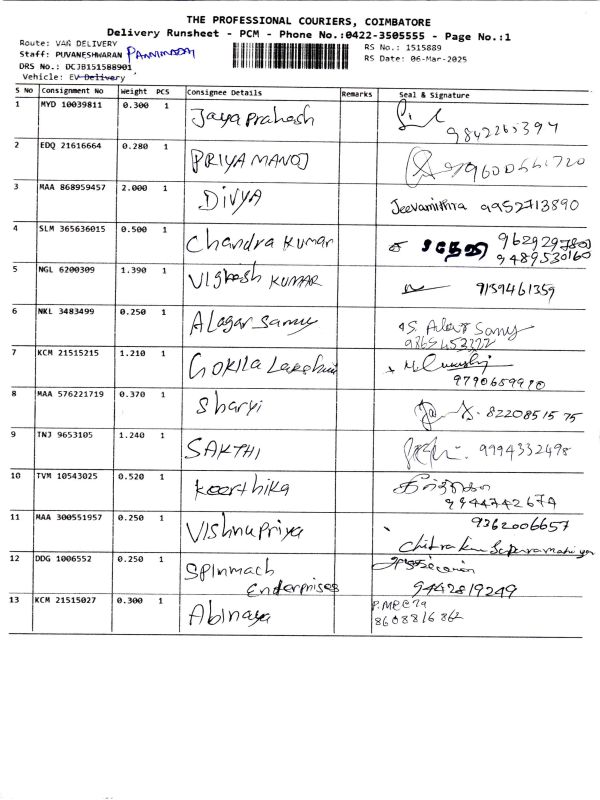 THE PROFESSIONAL COURIERS, COIMBATORE
Delivery Runsheet - PCM - Phone No.:0422-3505555 - Page No.:1
Route: VAN DELIVERY
RS No.: 1515889
Staff: PUVANESHWARAN
RS Date: 06-Mar-2025
DRS No.: DCJB151588901
Vehicle: EV Delivery
S No Consignment No Weight PCS Consignee Details Remarks Seal & Signature
1 MYD 10039811 0.300 1 Jaya Prakash
9842265394
2 EDQ 21616664 0.280 1 PRIYA MANOJ
3 MAA 868959457 2.000 1 DIVYA Jeevanithna 9952713890
4 SLM 365636015 0.500 1 Chandra Kumar
9489530160
5 NGL 6200309 1.390 1 Vignesh KUMAR 9159461359
6 NKL 3483499 0.250 1 Alagar Samy
7 KCM 21515215 1.210 1 Gokila Lakshmi
9790659920
8 MAA 576221719 0.370 1 Sharyi 8220851575
9 TNJ 9653105 1.240 1 SAKTHI 9994332498
10 TVM 10543025 0.520 1 Keerthika
9944742674
11 MAA 300551957 0.250 1 Vishnu Priya 9362006657
12 DDG 1006552 0.250 1 Spinmach
Enderprises 9442819249
13 KCM 21515027 0.300 1 Abinaya
8608816862